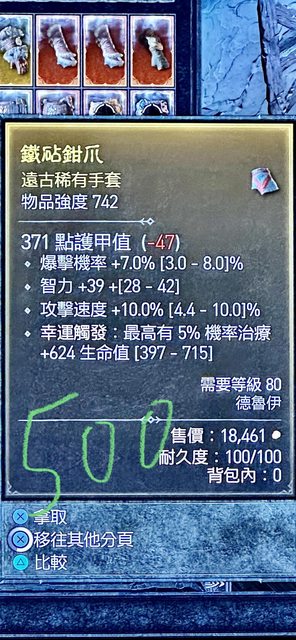 鐵砧鉗爪
遠古稀有手套
物品強度 742
371 點護甲值 (-47)
爆擊機率 +7.0% [3.0 – 8.0]%
智力 +39 +[28 – 42]
攻擊速度 +10.0% [4.4 – 10.0]%
幸運觸發：最高有 5% 機率治療
+624 生命值 [397 – 715]
需要等級 80
德魯伊
500
售價：18,461
耐久度：100/100
背包內：0
拿取
移往其他分頁
比較